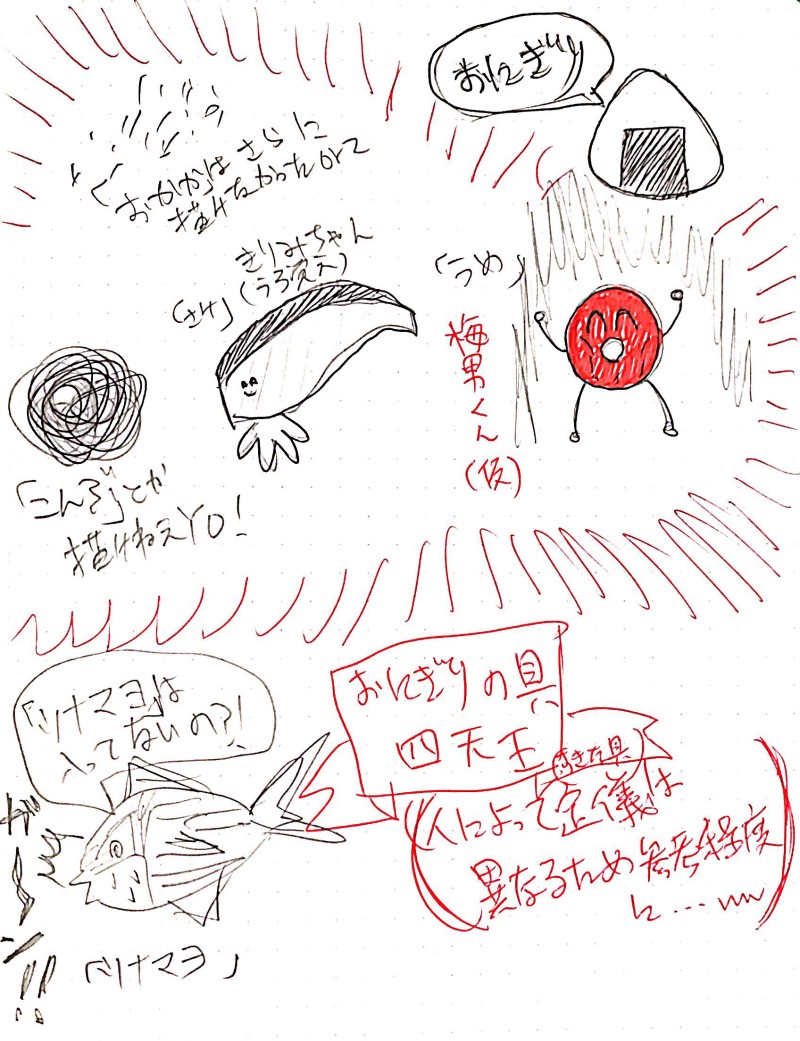 おにぎり
「おかか」はさらに
描けたかったので
きりみちゃん
(うろ覚え)
「さけ」
「うめ」
梅男くん
(仮)
「こんぶ」とか
描けねえYO!
「ツナマヨ」は
入ってないの?!
おにぎりの具
四天王
好きな具
(人によって定儀は
異なるため参考程度
に…
ガーン!!
「ツナマヨ」